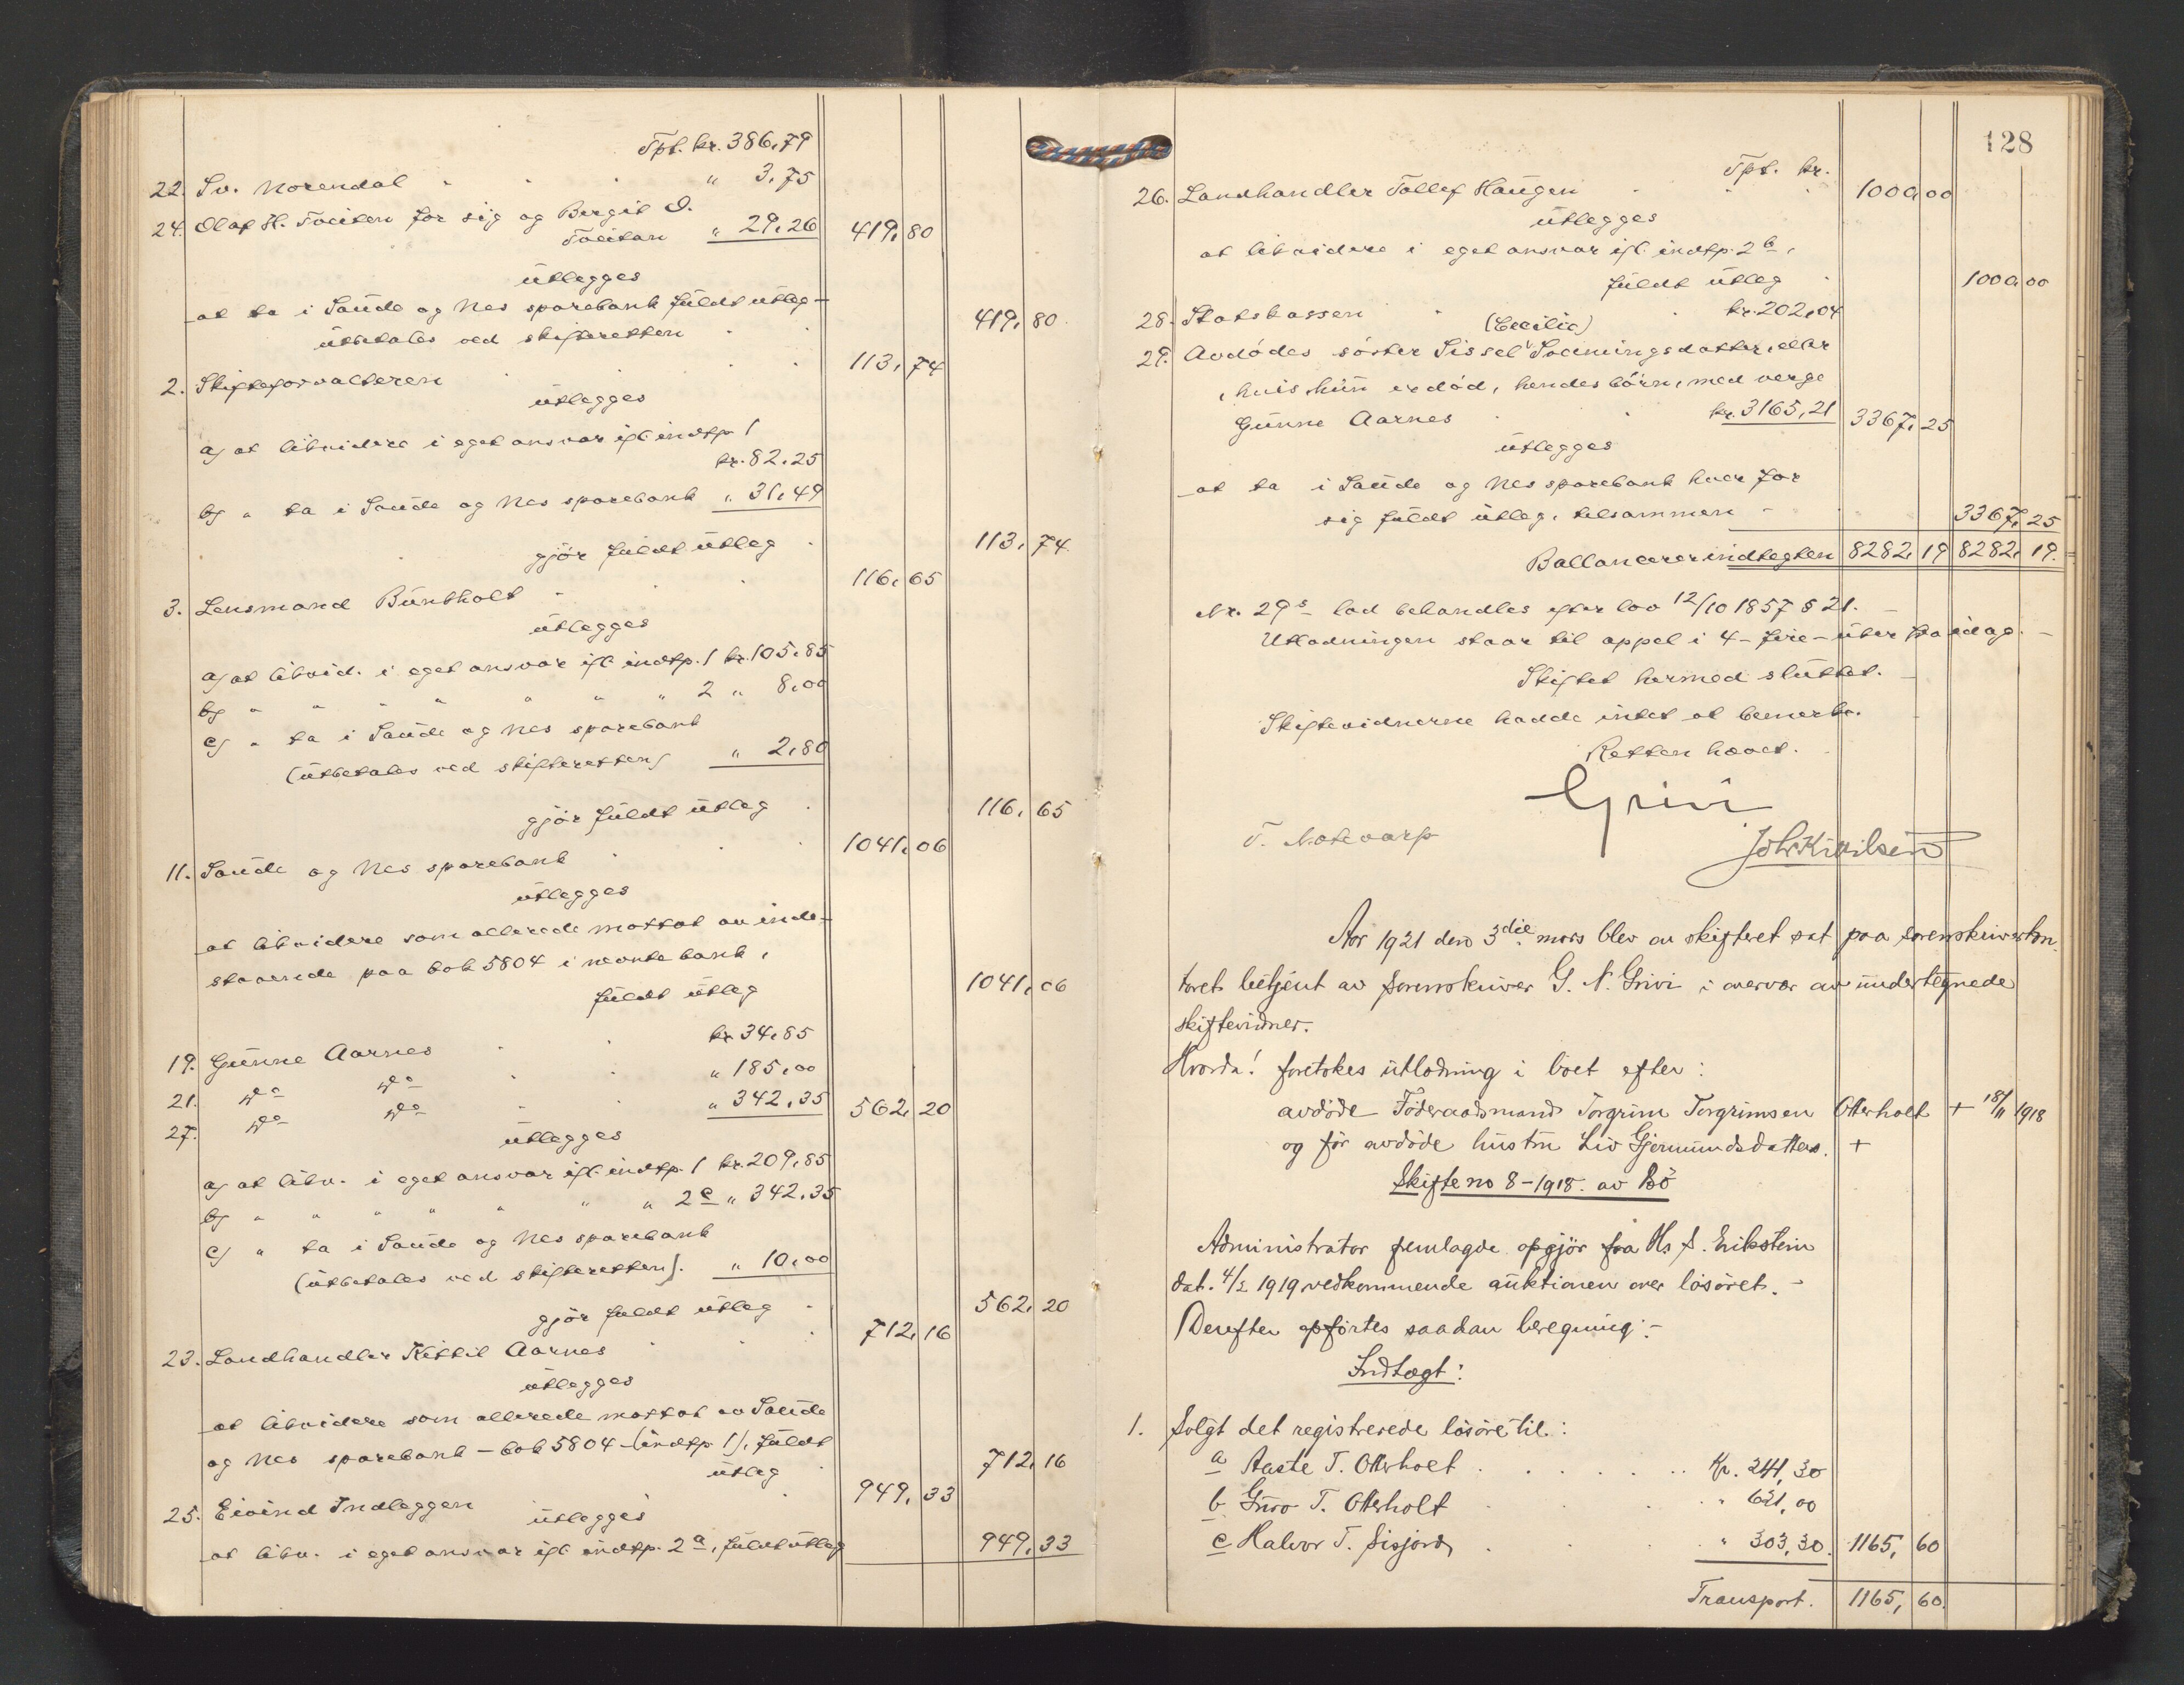 Tpt. kr. 386,79
22. Sv. Norendal " 3,75
24. Olaf H. Tveiten for sig og Bergit O.
Tveitan " 29,26 419,80
utlegges
at ta i Saude og Nes sparebank fuldt utleg -
utbetales ved skifteretten 419,80
2. Skifteforvalteren 113,74
utlegges
a) at likvidere i eget ansvar ifl. indtp. 1
kr. 82,25
b) " ta i Saude og Nes sparebank " 31,49
gjör fuldt utleg 113,74
3. Lensmand Buntholt 116,65
utlegges
a) at likvid. i eget ansvar ifl. indtp. 1 kr. 105,85
b) " " " " " " " 2 " 8,00
c) " ta i Saude og Nes sparebank
(utbetales ved skifteretten) " 2,80
gjör fuldt utleg 116,65
11. Saude og Nes sparebank 1041,06
utlegges
at likvidere som allerede mottat av inde-
staaende paa bok 5804 i nevnte bank,
fuldt utleg 1041,06
19. Gunne Aarnes kr. 34,85
21. do do " 185,00
27. do do " 342,35 562,20
utlegges
a) at likv. i eget ansvar ifl. indtp. 1 kr. 209,85
b) " " " " " " " 2 c " 342,35
c) " ta i Saude og Nes sparebank
(utbetales ved skifteretten). " 10,00
gjör fuldt utleg 562,20
23. Landhandler Kittil Aarnes 712,16
utlegges
at likvidere som allerede mottat av Saude
og Nes sparebank - bok 5804 - (indtp. 1), fuldt
utleg 712,16
25. Eivind Indleggen 949,33
utlegges
at likv. i eget ansvar ifl. indtp. 2 a, fuldt utleg 949,33
128
Tpt. kr.
26. Landhandler Tollef Haugen 1000,00
utlegges
at likvidere i eget ansvar ifl. indtp. 2 b,
fuldt utleg 1000,00
28. Statskassen kr. 202,04
(Cecilie)
29. Avdödes söster Sissel Sveinungsdatter, eller
, hvis hun er död, hendes börn, med verge
Gunne Aarnes kr. 3165,21 3367,25
utlegges
at ta i Saude og Nes sparebank hver for
sig fuldt utleg, tilsammen 3367,25
Ballancerer indtegten 8282,19 8282,19.
Nr. 29s lod behandles efter lov 12/10 1857 § 21.
Utlodningen staar til appel i 4 - fire - uker fra idag. -
Skiftet hermed sluttet.
Skiftevidnerne hadde intet at bemerke.
Retten hævet.
Grivi
T. Notevarp Joh. Kittilsen
Aar 1921 den 3die mars blev en skifteret sat paa sorenskriverkon-
toret betjent av sorenskriver G. N. Grivi i overvær av undertegnede
skiftevidner.
Hvorda! foretokes utlodning i boet efter:
avdöde Föderaadsmand Torgrim Torgrimsen Otterholt + 18/11 1918
og för avdöde hustru Liv Gjermundsdatter. +
Skifte no 8 - 1918. av Bö
Administrator fremlagde opgjör fra Hs S. Erikstein
dat. 4/2 1919 vedkommende auktionen over lösöret. -
Derefter opförtes saadan beregning: -
Indtægt:
1. Solgt det registrerede lösöre til:
a Aaste T. Otterholt Kr. 241,30
b Guro T. Otterholt " 621,00
c Halvor T. Sisjord " 303,30. 1165,60
Transport. 1165,60.